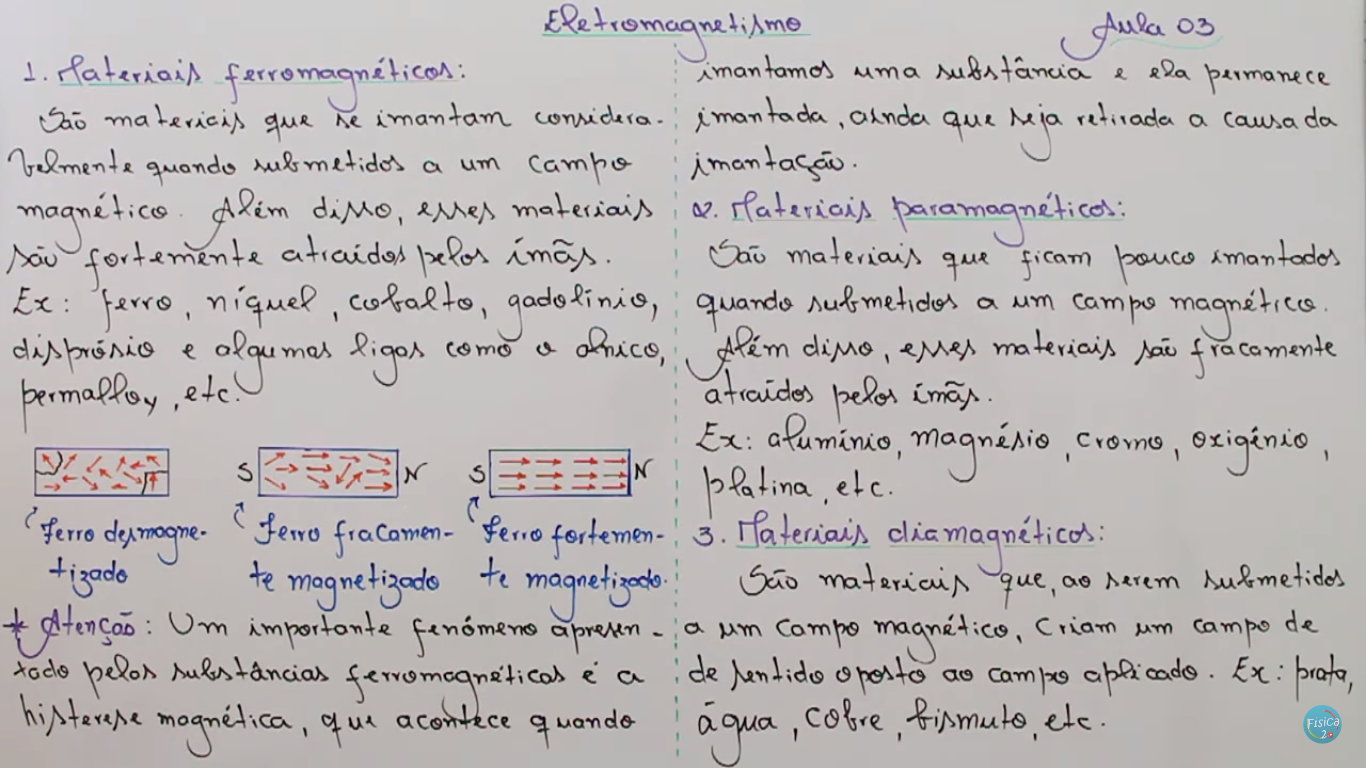 Eletromagnetismo
Aula 03
1. Materiais ferromagnéticos:
São materiais que se imantam considera-
velmente quando submetidos a um campo
magnético. Além disso, esses materiais
são fortemente atraídos pelos ímãs.
Ex: ferro, níquel, cobalto, gadolínio,
disprósio e algumas ligas como o alnico,
permalloy, etc.
S N S N
Ferro desmagne-
tizado
Ferro fracamen-
te magnetizado
Ferro fortemen-
te magnetizado.
* Atenção: Um importante fenómeno apresen-
tado pelas substâncias ferromagnéticas é a
histerese magnética, que acontece quando
imantamos uma substância e ela permanece
imantada, ainda que seja retirada a causa da
imantação.
2. Materiais paramagnéticos:
São materiais que ficam pouco imantados
quando submetidos a um campo magnético.
Além disso, esses materiais são fracamente
atraídos pelos ímãs.
Ex: alumínio, magnésio, cromo, oxigénio,
platina, etc.
3. Materiais diamagnéticos:
São materiais que, ao serem submetidos
a um campo magnético, criam um campo de
de sentido oposto ao campo aplicado. Ex: prata,
água, cobre, bismuto, etc.
Física
2.0